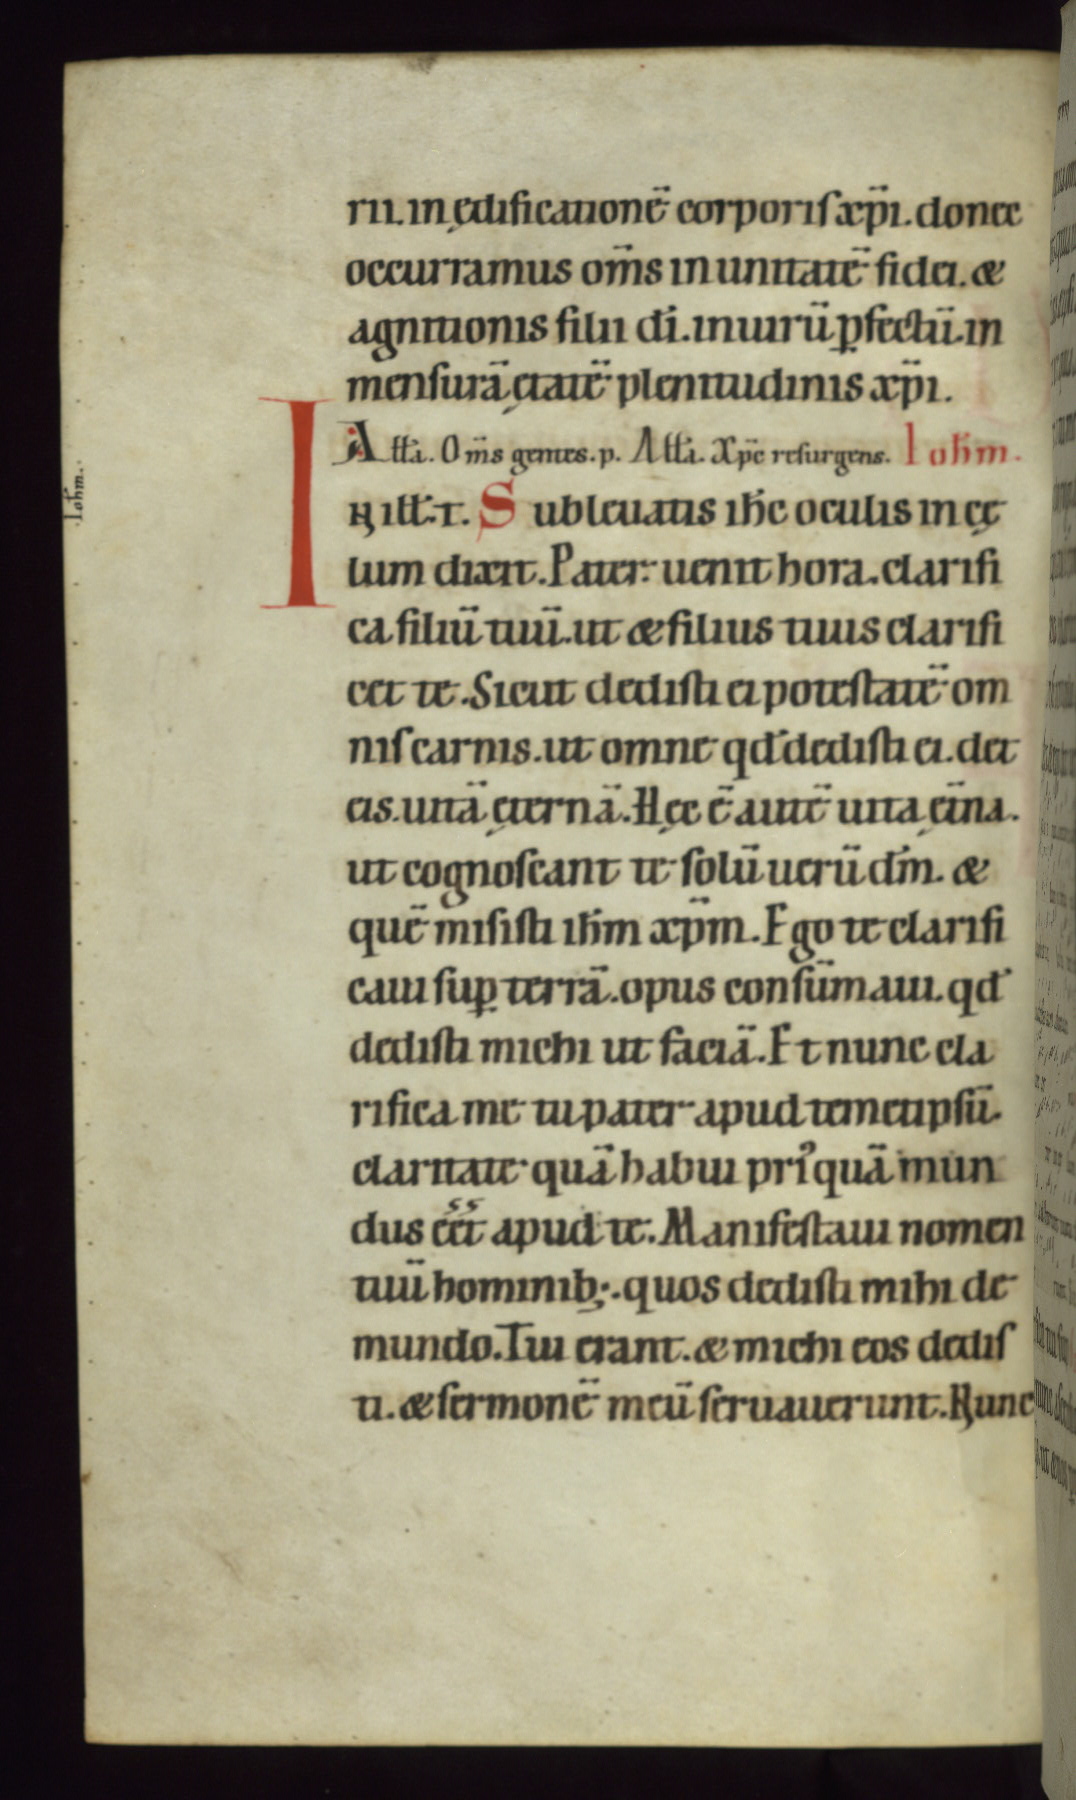 rii. in ędificationē corporis xp̄i. donec
occurramus om̄s in unitatē fidei. &
agnitionis filii dī. in uirū ꝑfectū. in
mensurā ętatē plenitudinis xp̄i.
All̄a. Om̄s gentes. p. All̄a. Xp̄c resurgens. Ioh̄m.
IN ill̄. t. Subleuatis ih̄c oculis in cę
lum dixit. Pater: uenit hora. clarifi
ca filiū tuū. ut & filius tuus clarifi
cet te. Sicut dedisti ei potestatē om
nis carnis. ut omne qd̄ dedisti ei. det
eis. uitā ęternā. Hęc ē autē uita ęt̄na.
ut cognoscant te solū uerū dm̄. &
quē misisti ih̄m xp̄m. Ego te clarifi
caui suꝑ terrā. opus consūmaui. qd̄
dedisti michi ut faciā. Et nunc cla
rifica me tu pater apud temetipsū.
claritate quā habui pri᾿quā mun
dus eēt apud te. Manifestaui nomen
tuū hominib;. quos dedisti mihi de
mundo. Tui erant. & michi eos dedis
ti. & sermonē meū seruauerunt. Nunc
Ioh̄m.